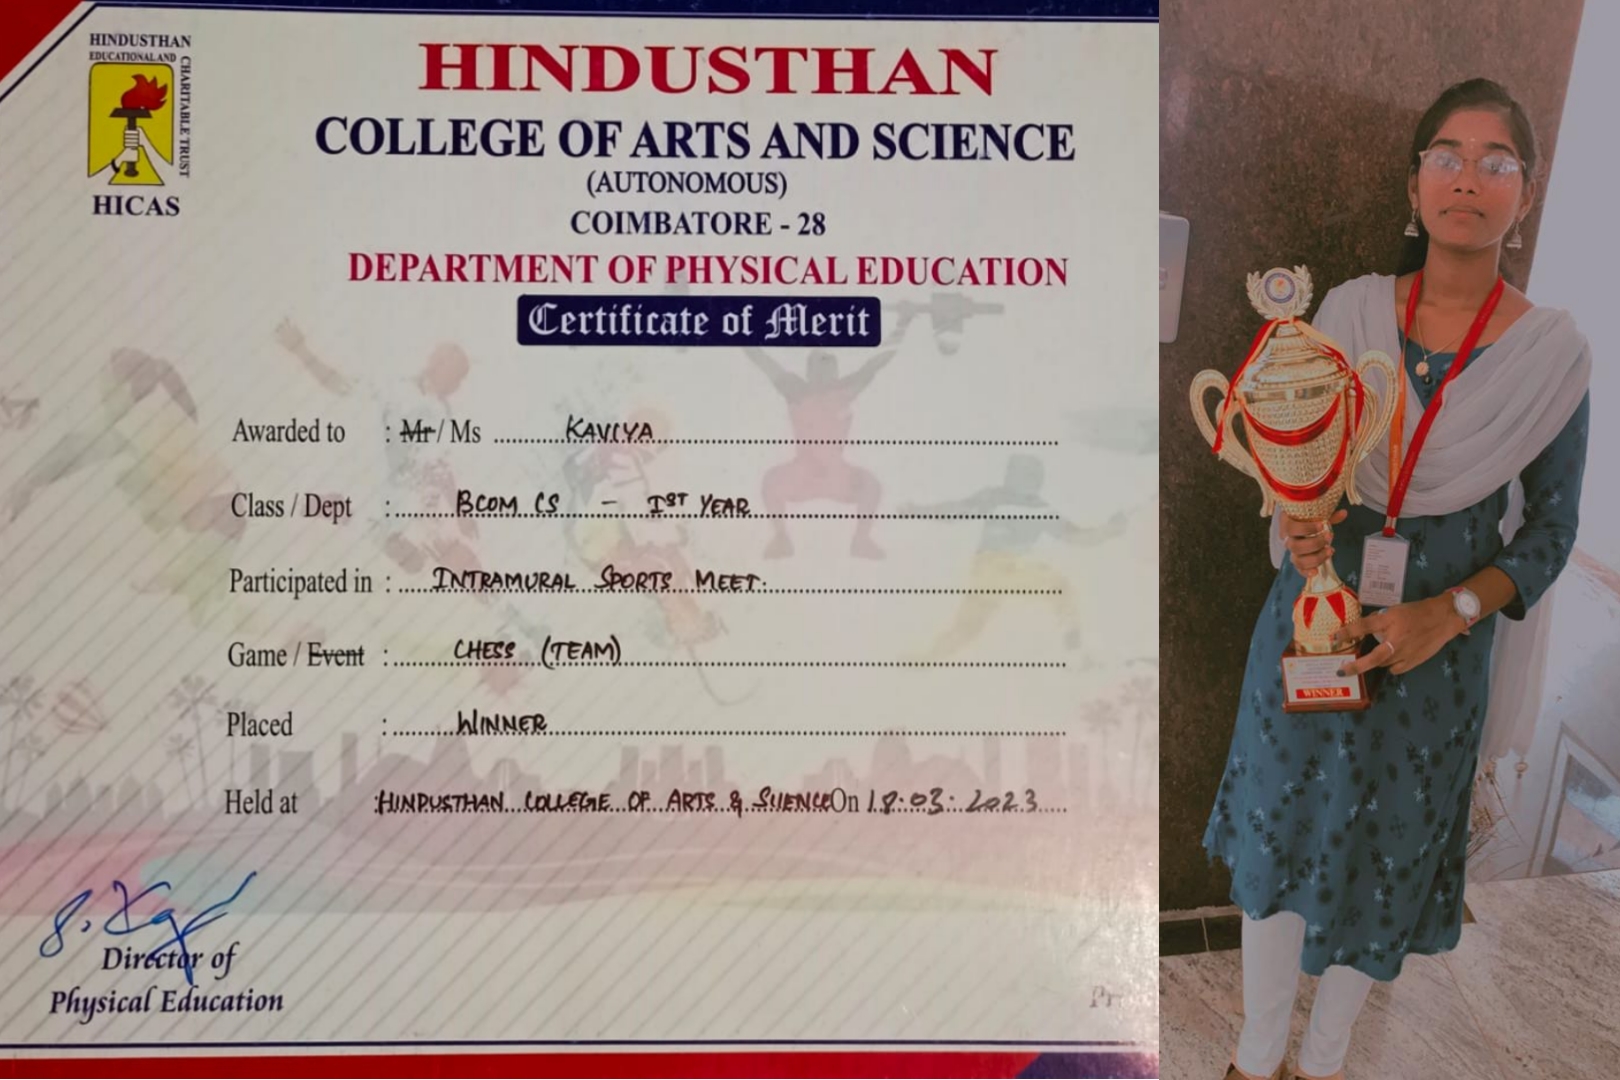 HINDUSTHAN
EDUCATIONAL AND
CHARITABLE TRUST
HICAS
HINDUSTHAN
COLLEGE OF ARTS AND SCIENCE
(AUTONOMOUS)
COIMBATORE - 28
DEPARTMENT OF PHYSICAL EDUCATION
Certificate of Merit
Awarded to : Mr / Ms KAVIYA
Class / Dept : BCOM CS - IST YEAR
Participated in : INTRAMURAL SPORTS MEET.
Game / Event : CHESS (TEAM)
Placed : WINNER
Held at : HINDUSTHAN COLLEGE OF ARTS & SCIENCE On 18.03.2023
Director of
Physical Education
WINNER